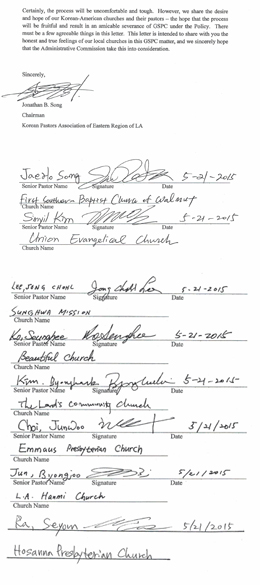 Certainly, the process will be uncomfortable and tough. However, we share the desire
and hope of our Korean-American churches and their pastors – the hope that the process
will be fruitful and result in an amicable severance of GSPC under the Policy. There
must be a few agreeable things in this letter. This letter is intended to share with you the
honest and true feelings of our local churches in this GSPC matter, and we sincerely hope
that the Administrative Commission take this into consideration.
Sincerely,
Jonathan B. Song
Chairman
Korean Pastors Association of Eastern Region of LA
JaeHo Song 5-21-2015
Senior Pastor Name Signature Date
First Southern Baptist Church of Walnut
Church Name
Sonjil Kim 5-21-2015
Senior Pastor Name Signature Date
Union Evangelical Church
Church Name
LEE, JONG CHOHL Jong Chohl Lee 5-21-2015
Senior Pastor Name Signature Date
SUNGHWA MISSION
Church Name
Ko, Seunghee 5-21-2015
Senior Pastor Name Signature Date
Beautiful Church
Church Name
Kim, 5-21-2015
Senior Pastor Name Signature Date
The Lord's Community Church
Church Name
Choi, JunWoo 5/21/2015
Senior Pastor Name Signature Date
Emmaus Presbyterian Church
Church Name
Jun, Byongjoo 5/21/2015
Senior Pastor Name Signature Date
L.A. Hanmi Church
Church Name
Ra, Seyoun 5/21/2015
Hosanna Presbyterian Church